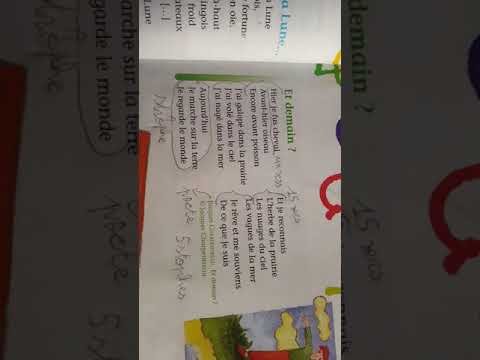 a Lune...
a Lune
ois,
fortune
on oie,
-haut
ingois
froid
ateaux
[...]
Lune
Et demain ?
Hier je fus cheval
Avant-hier oiseau
Encore avant poisson
J'ai galopé dans la prairie
J'ai volé dans le ciel
J'ai nagé dans la mer
Aujourd'hui
Je marche sur la terre
Je regarde le monde
strophe
15 vers
Et je reconnais
L'herbe de la prairie
Les nuages du ciel
Les vagues de la mer
Je rêve et me souviens
De ce que je suis
Jacques Charpentreau, Et demain ?
© Jacques Charpentreau
poète 5 strophes